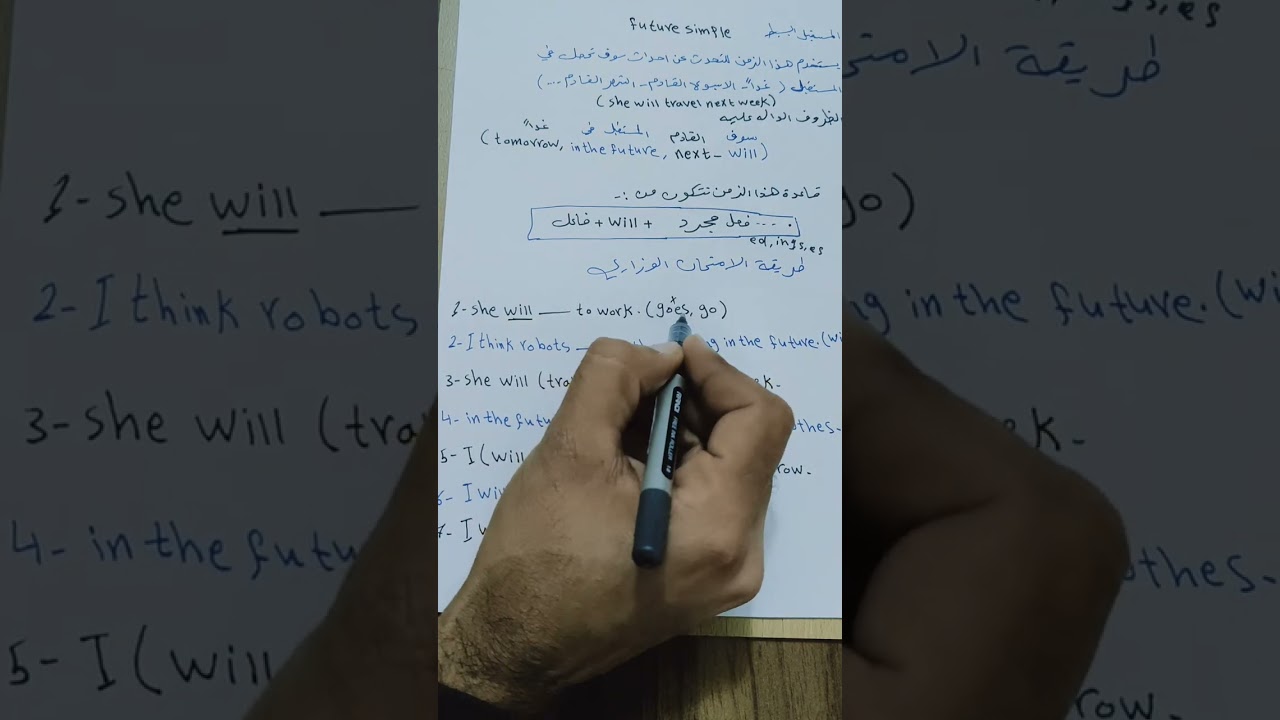 المستقبل البسيط future simple
يستخدم هذا الزمن للتحدث عن احداث سوف تحصل في
المستقبل ( غداً - الاسبوع القادم - الشهر القادم ....)
(she will travel next week)
الظروف الداله عليه
سوف القادم المستقبل في غداً
(tomorrow, in the future, next - will)
قاعدة هذا الزمن تتكون من :-
فاعل + will + فعل مجرد ....
ed, ing, s, es
طريقة الامتحان الوزاري
1- she will ___ to work. (goes, go)
2- I think robots ___ in the future. (wi
3- she will (tra
4- in the futu othes.
5- I (will row.
6- I wi
7- I w